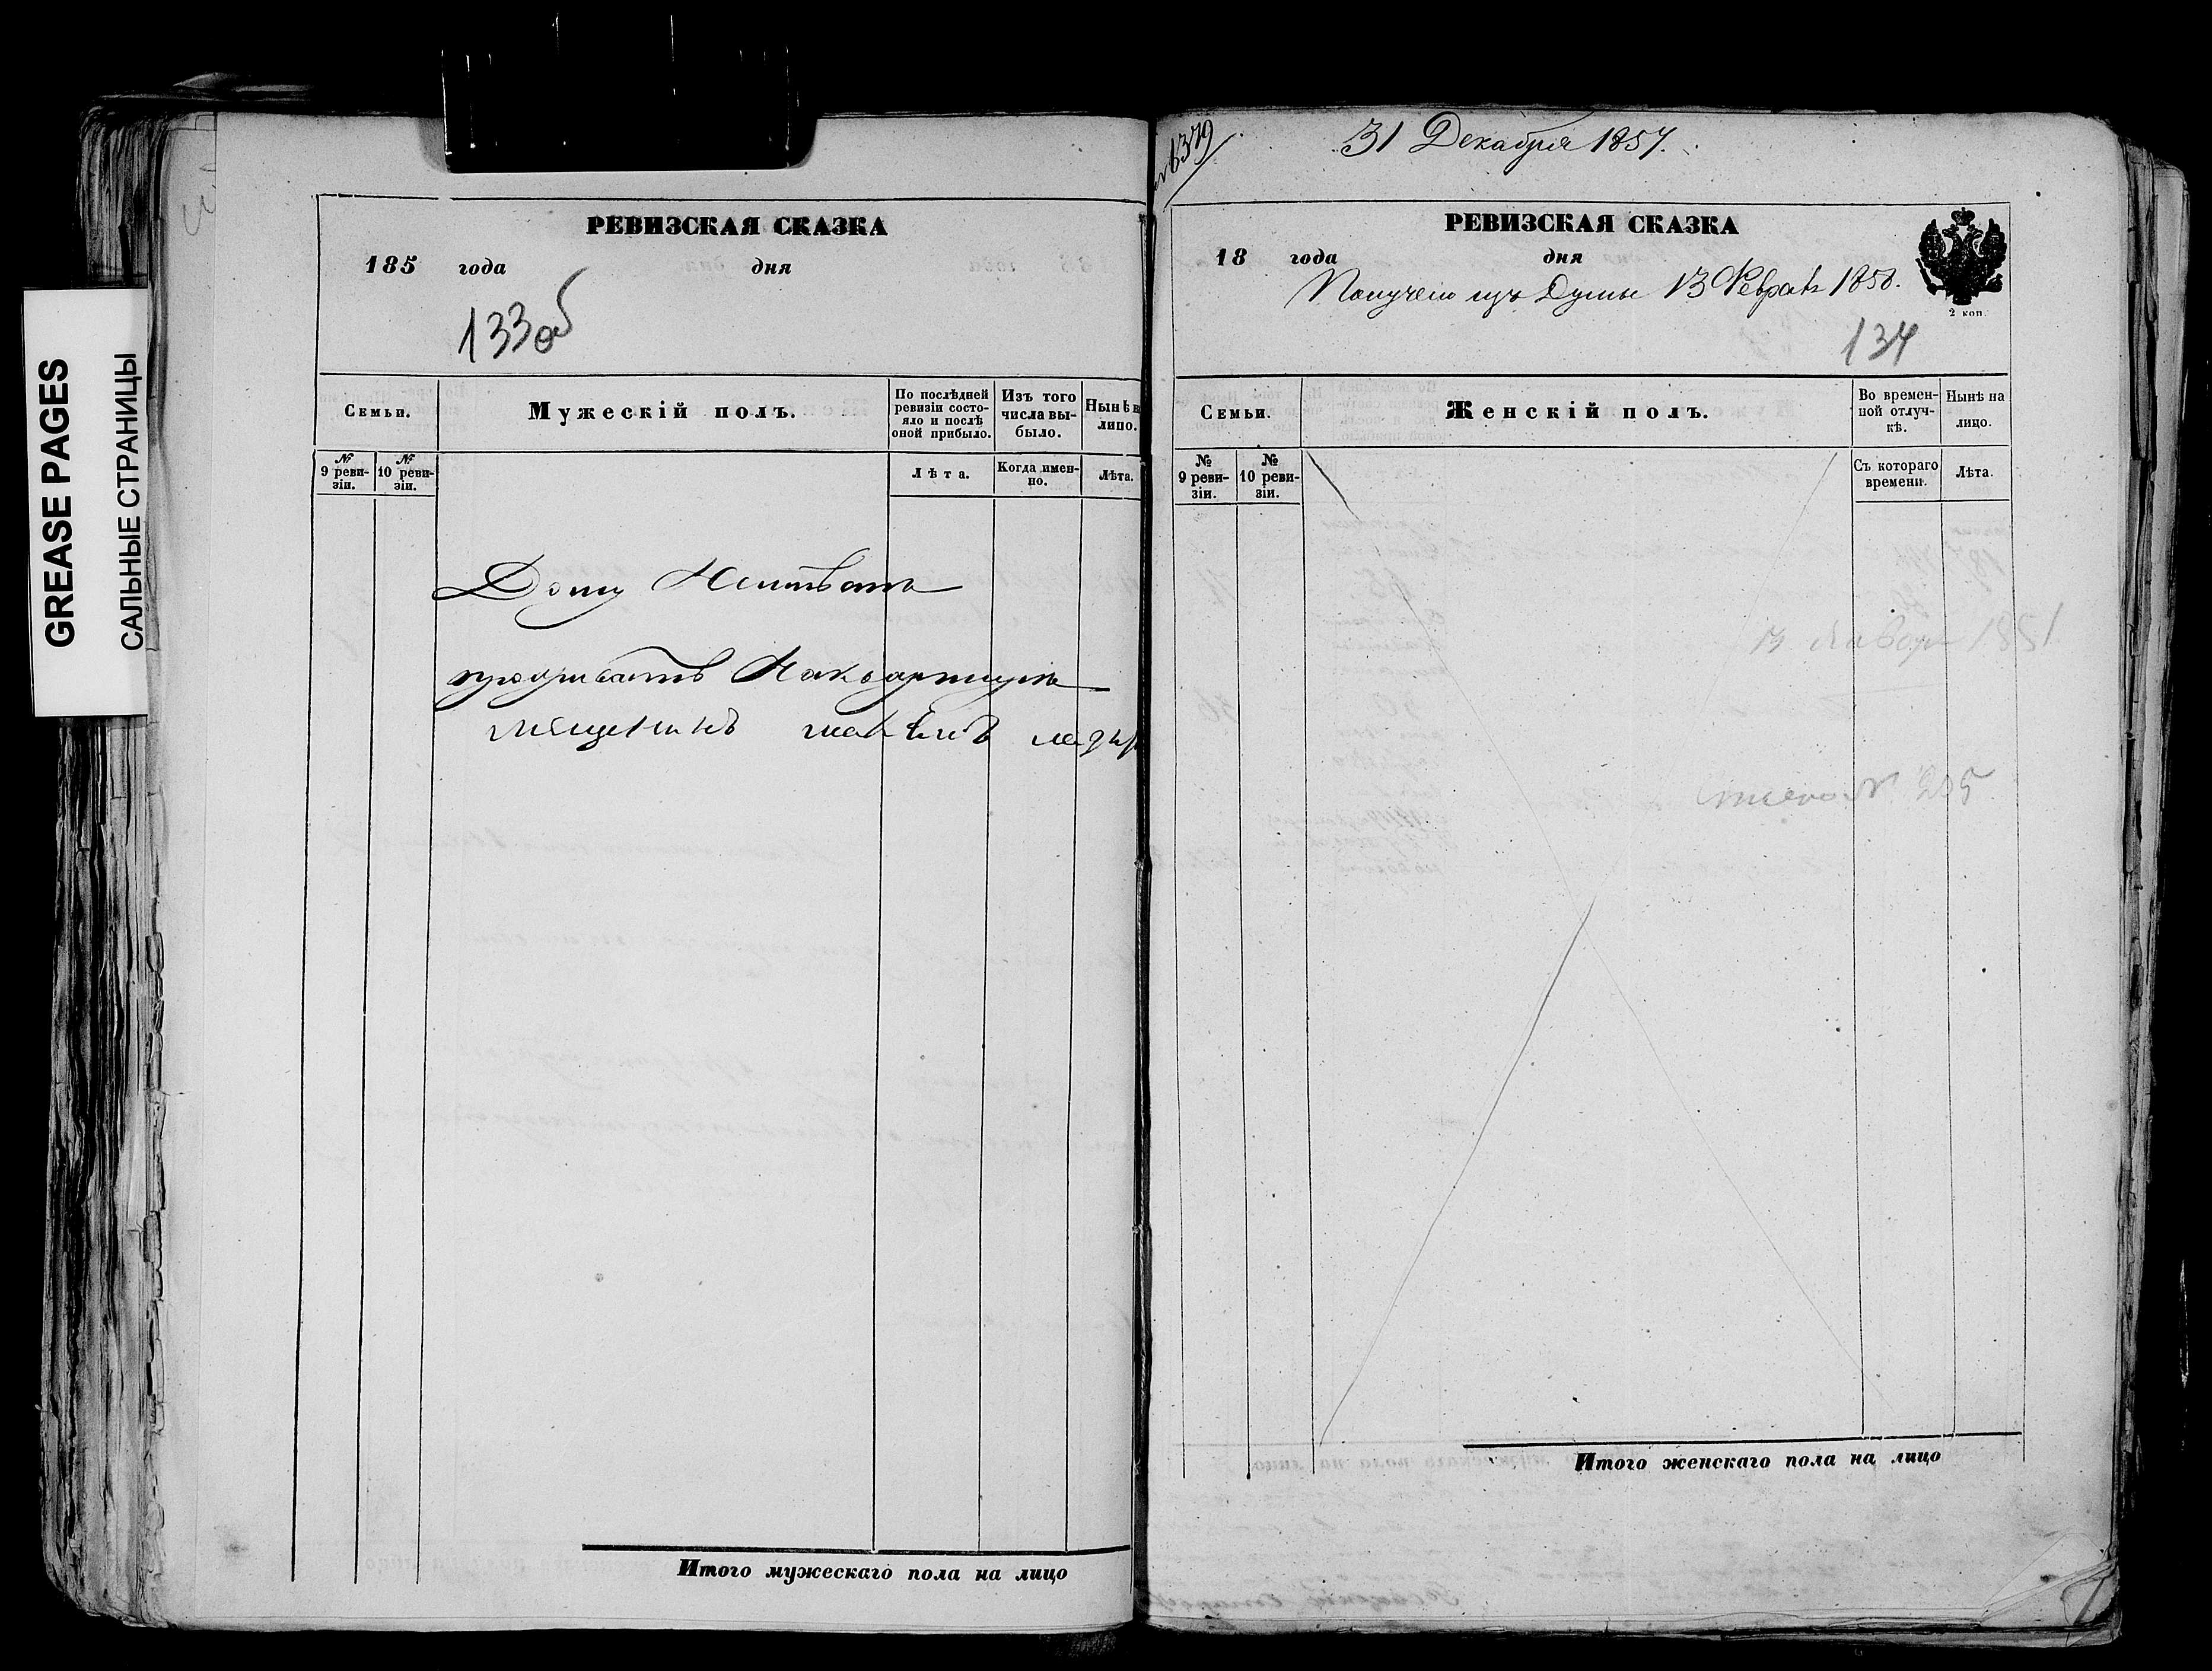 GREASE PAGES
САЛЬНЫЕ СТРАНИЦЫ
РЕВИЗСКАЯ СКАЗКА
185 года дня
133об
Семьи.
Мужескій полъ.
По послѣдней ревизіи состояло и послѣ оной прибыло.
Изъ того числа выбыло.
Нынѣ на лицо.
№ 9 ревизіи.
№ 10 ревизіи.
Лѣта.
Когда именно.
Лѣта.
Дому
проживаетъ
мещенинъ
Итого мужескаго пола на лицо
31 Декабря 1857.
РЕВИЗСКАЯ СКАЗКА
18 года дня
Получено изъ Думы 13 Февраля 1858.
2 коп.
134
Семьи.
Женскій полъ.
Во временной отлучкѣ.
Нынѣ на лицо.
№ 9 ревизіи.
№ 10 ревизіи.
Съ котораго времени.
Лѣта.
13 Января 1851
№ 205
Итого женскаго пола на лицо